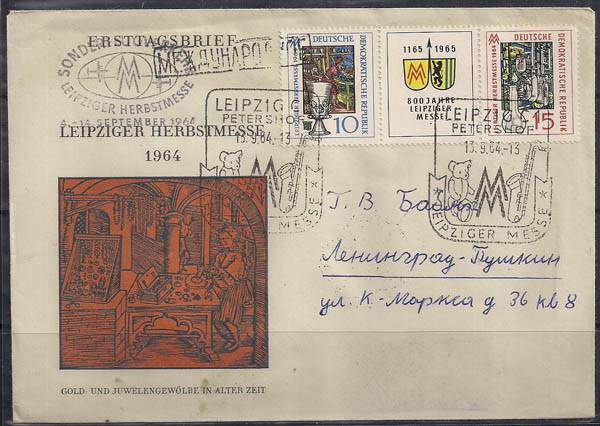 ERSTTAGSBRIEF
LEIPZIGER HERBSTMESSE
1964
SONDER
MM
LEIPZIGER HERBSTMESSE
6.-14. SEPTEMBER 1964
DEUTSCHE
DEMOKRATISCHE REPUBLIK
10
1165 1965
800 JAHRE
LEIPZIGER
MESSE
DEUTSCHE
DEMOKRATISCHE REPUBLIK
LEIPZIGER HERBSTMESSE 1964
15
LEIPZIG
PETERSHOF
13.9.64.-13
MM
LEIPZIGER MESSE
LEIPZIG
PETERSHOF
13.9.64.-13
MM
LEIPZIGER MESSE
Г. В
Ленинград-Пушкин
ул. К-Маркса д 36 кв 8
GOLD- UND JUWELENGEWÖLBE IN ALTER ZEIT